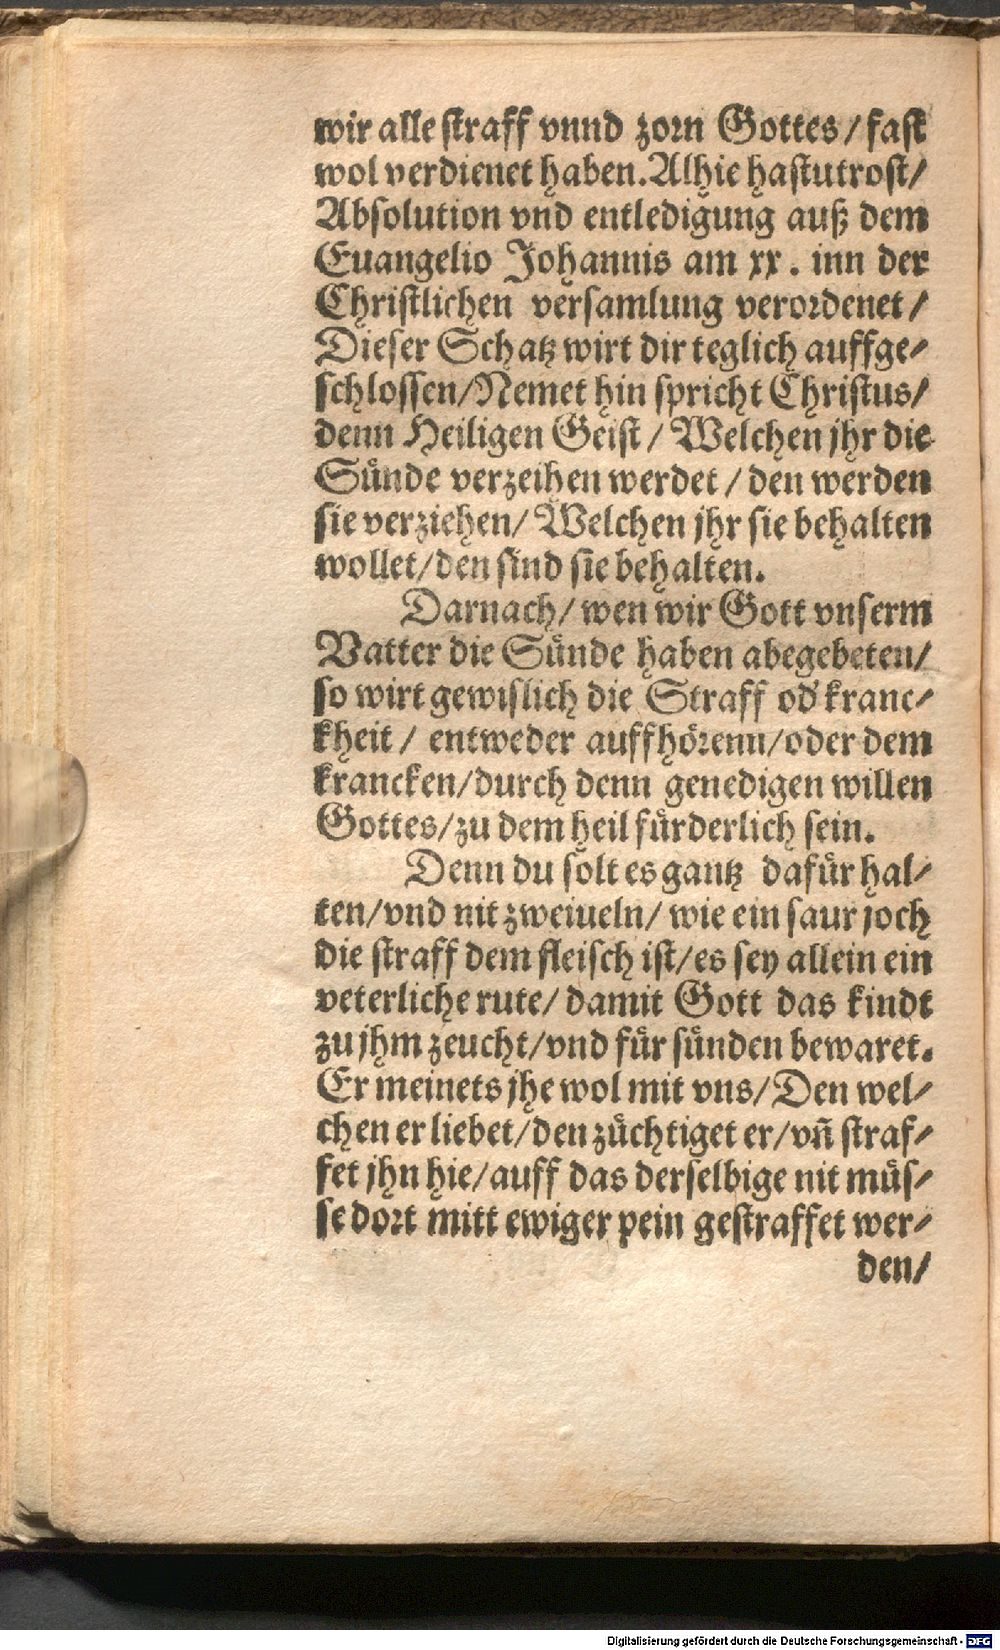 wir alle straff vnnd zorn Gottes / fast
wol verdienet haben. Alhie hastu trost/
Absolution vnd entledigung auß dem
Euangelio Johannis am xx. inn der
Christlichen versamlung verordenet /
Dieser Schatz wirt dir teglich auffge⸗
schlossen/Nemet hin spricht Christus/
denn Heiligen Geist / Welchen jhr die
Sünde verzeihen werdet / den werden
sie verziehen/ Welchen jhr sie behalten
wollet/den sind sie behalten.
Darnach/ wen wir Gott vnserm
Vatter die Sünde haben abegebeten/
so wirt gewislich die Straff od' kranc⸗
kheit / entweder auffhörenn/oder dem
krancken/durch denn genedigen willen
Gottes/zu dem heil fürderlich sein.
Denn du solt es gantz dafür hal⸗
ten/vnd nit zweiueln/ wie ein saur joch
die straff dem fleisch ist/es sey allein ein
veterliche rute/ damit Gott das kindt
zu jhm zeucht/vnd für sünden bewaret.
Er meinets jhe wol mit vns/Den wel⸗
chen er liebet/den züchtiget er/vñ straf⸗
fet jhn hie/auff das derselbige nit müs⸗
se dort mitt ewiger pein gestraffet wer⸗
den/
Digitalisierung gefördert durch die Deutsche Forschungsgemeinschaft - DFG